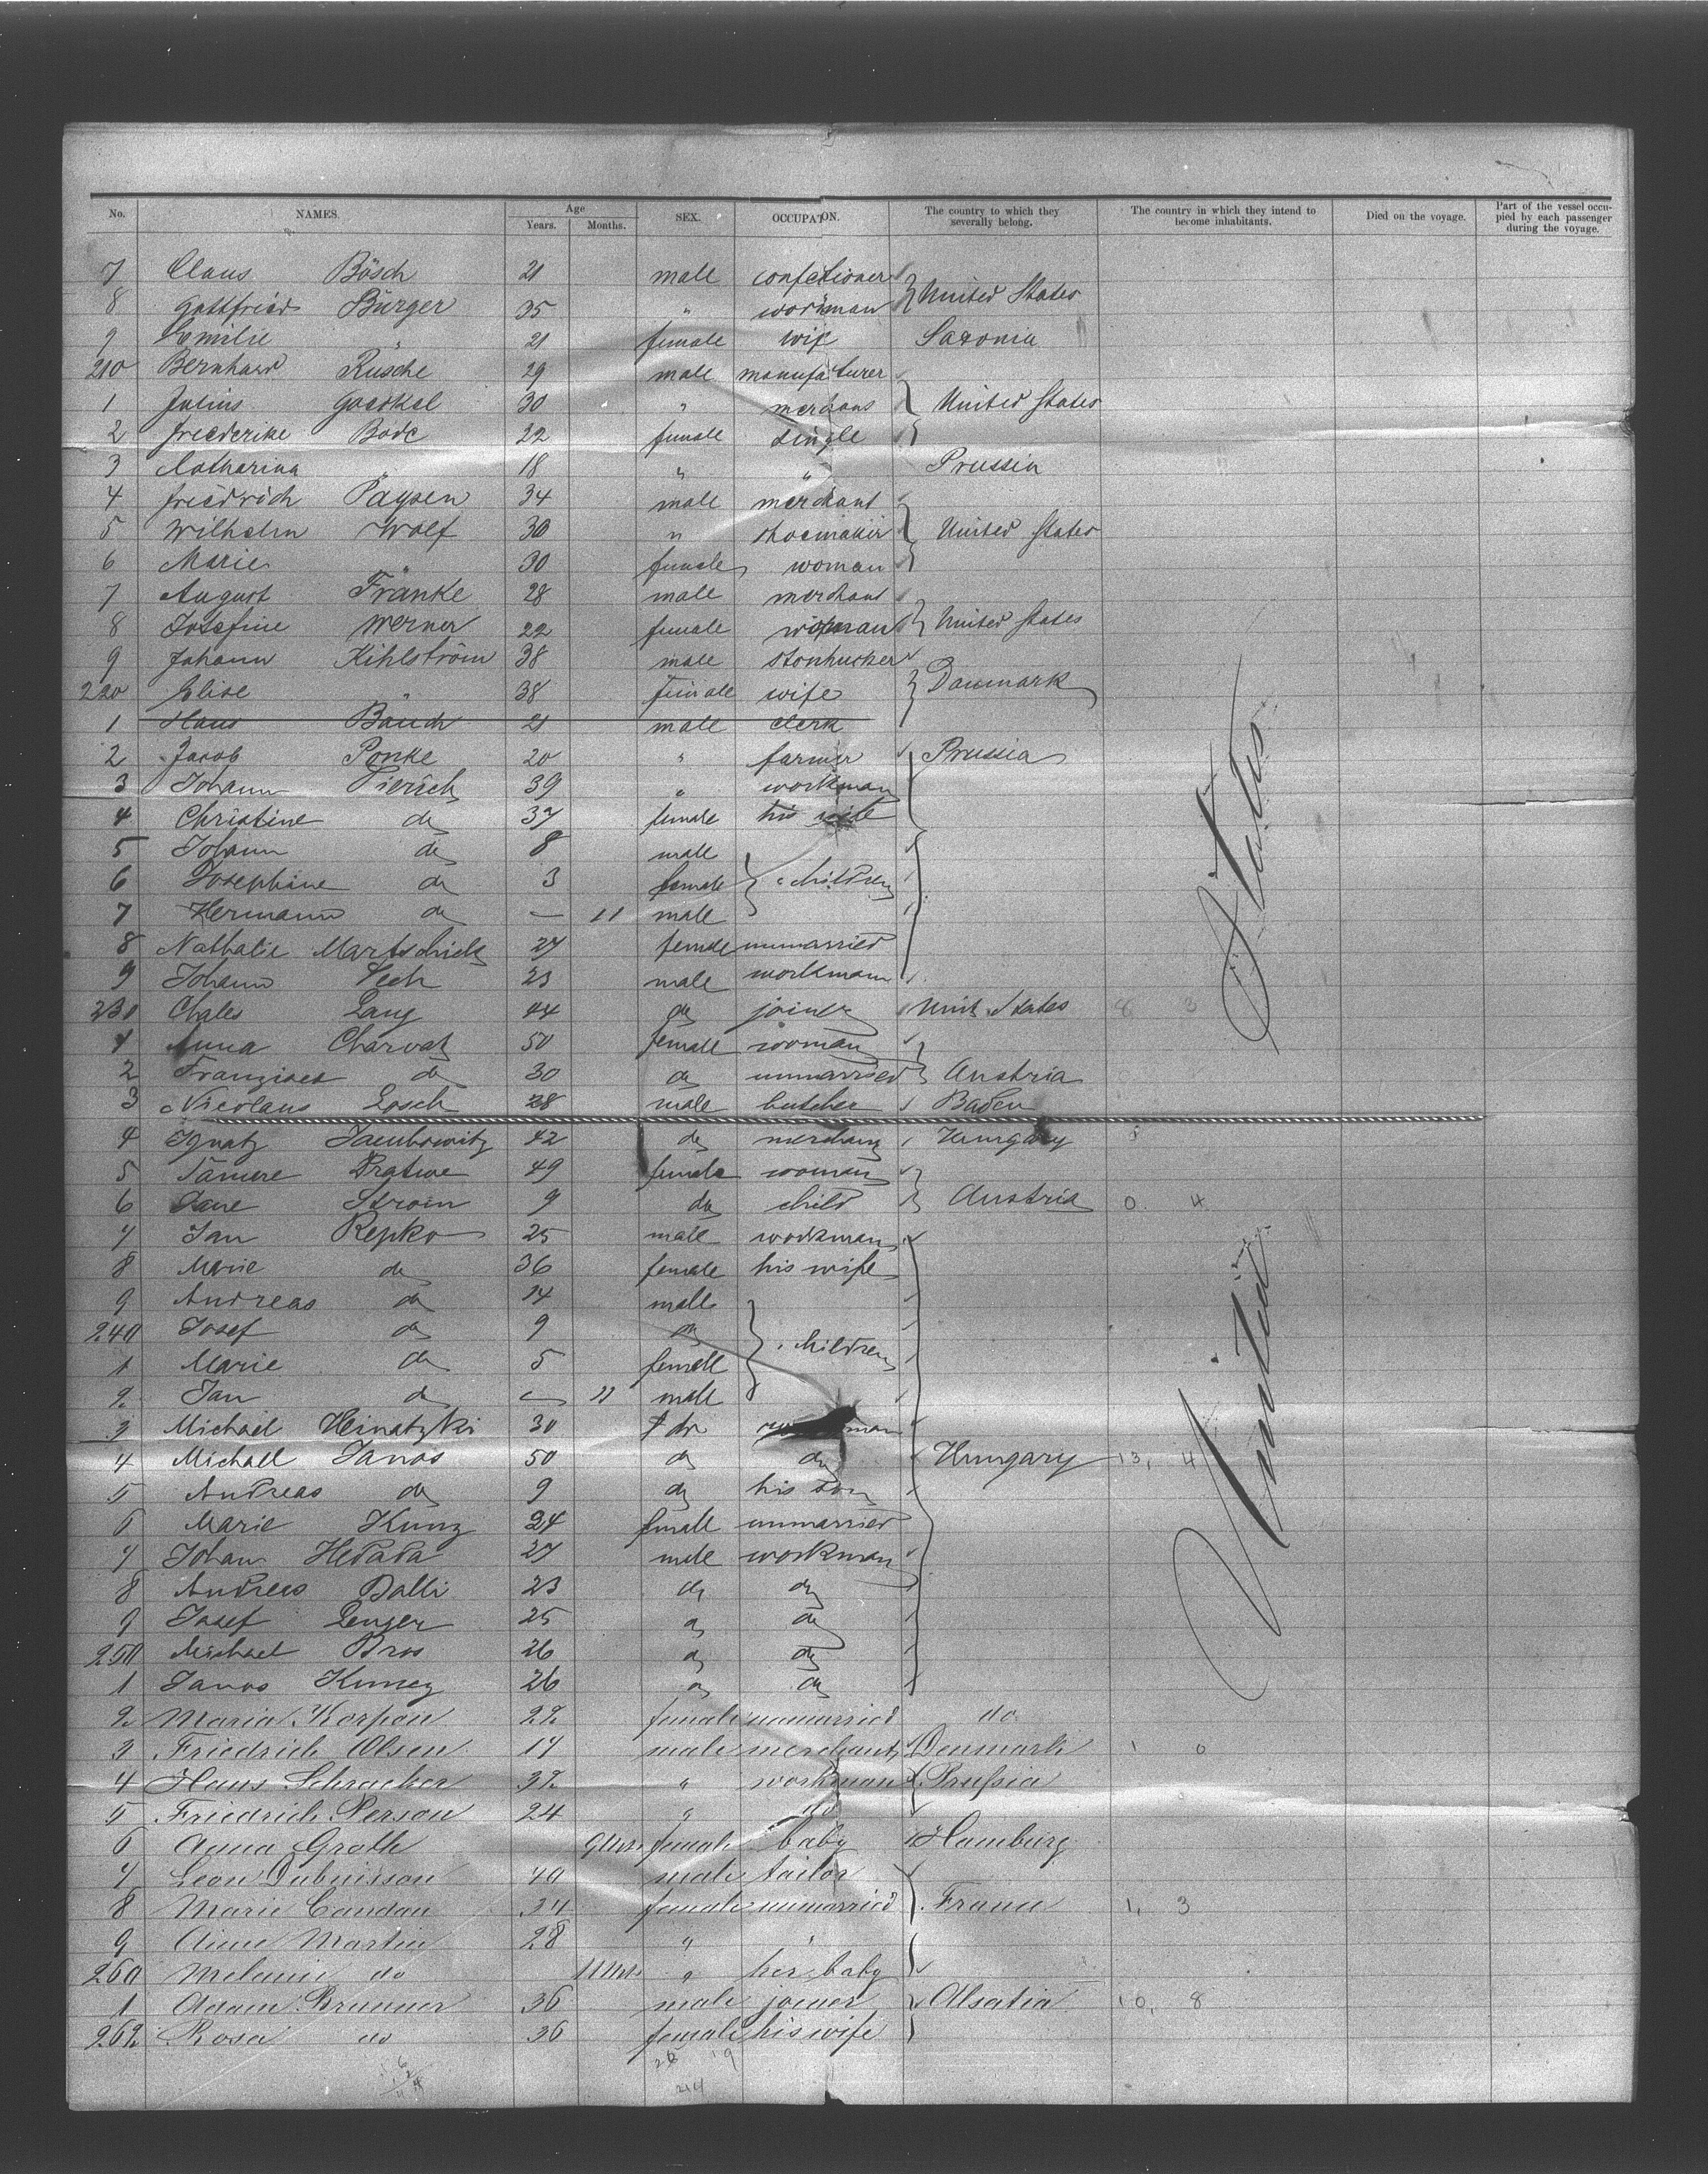 No. NAMES. Age Years. Months. SEX. OCCUPATION. The country to which they severally belong. The country in which they intend to become inhabitants. Died on the voyage. Part of the vessel occupied by each passenger during the voyage.
7 Claus Bösch 21 male confectioner
8 Gottfried Bürger 35 " workman United States
9 Emilie " 21 female wife Saxonia
210 Bernhard Rüsche 29 male manufacturer
1 Julius Goeckel 30 " merchant United States
2 Friederike Bode 22 female single
3 Catharina " 18 " " Prussia
4 Friedrich Paysen 34 male merchant
5 Wilhelm Wolf 30 " shoemaker United States
6 Marie " 30 female woman
7 August Franke 28 male merchant
8 Josefine Werner 22 female woman United States
9 Johann Kihlström 38 male
220 Elise " 38 female wife Danmark
1 Hans Bauch 21 male clerk
2 Jacob Ponke 20 " farmer Prussia
3 Johann Piersch 39 " workman
4 Christine do 37 female his wife
5 Johann do 8 male
6 Josephine do 3 female children
7 Hermann do — 11 male
8 Nathalie Martschick 27 female unmarried
9 Johann Pech 23 male workman
230 Chales Lang 44 do joiner Unit. States 6 3
1 Anna Charvat 50 female woman
2 Franzisca do 30 do unmarried Austria
3 Nicolaus Losch 28 male butcher Baden
4 Ignatz Jacubowitz 42 do merchant Hungary
5 49 female woman
6 Jane 9 do child Austria 0 4
7 Jan Repko 25 male workman
8 Marie do 36 female his wife
9 Andreas do 14 male
240 Josef do 9 do
1 Marie do 5 female children
2 Jan do — 11 male
3 Michael Heinatzki 30 do man
4 Michael Janos 50 do do Hungary 13, 4
5 Andreas do 9 do his son
6 Marie Kunz 24 female unmarried
7 Johan Hedada 27 male workman
8 Andreas Balli 23 do do
9 Josef Lenger 25 do do
250 Michael Bros 26 do do
1 Janos 26 do do
2 Maria Korpon 22 female unmarried do
3 Friedrich Olsen 17 male merchant Denmark 1 0
4 Hans Schracker 32 " workman Prussia
5 Friedrich Person 24 " do
6 Anna Groth 9 Mts female baby Hamburg
7 Leon Dubuisson 40 male tailor
8 Marie Candau 34 female unmarried France 1, 3
9 Aime Martin 28 " "
260 Melanie do 11 Mts " her baby
1 Adam Brunner 36 male joiner Alsatia 10, 8
262 Rosa do 36 female his wife
United States